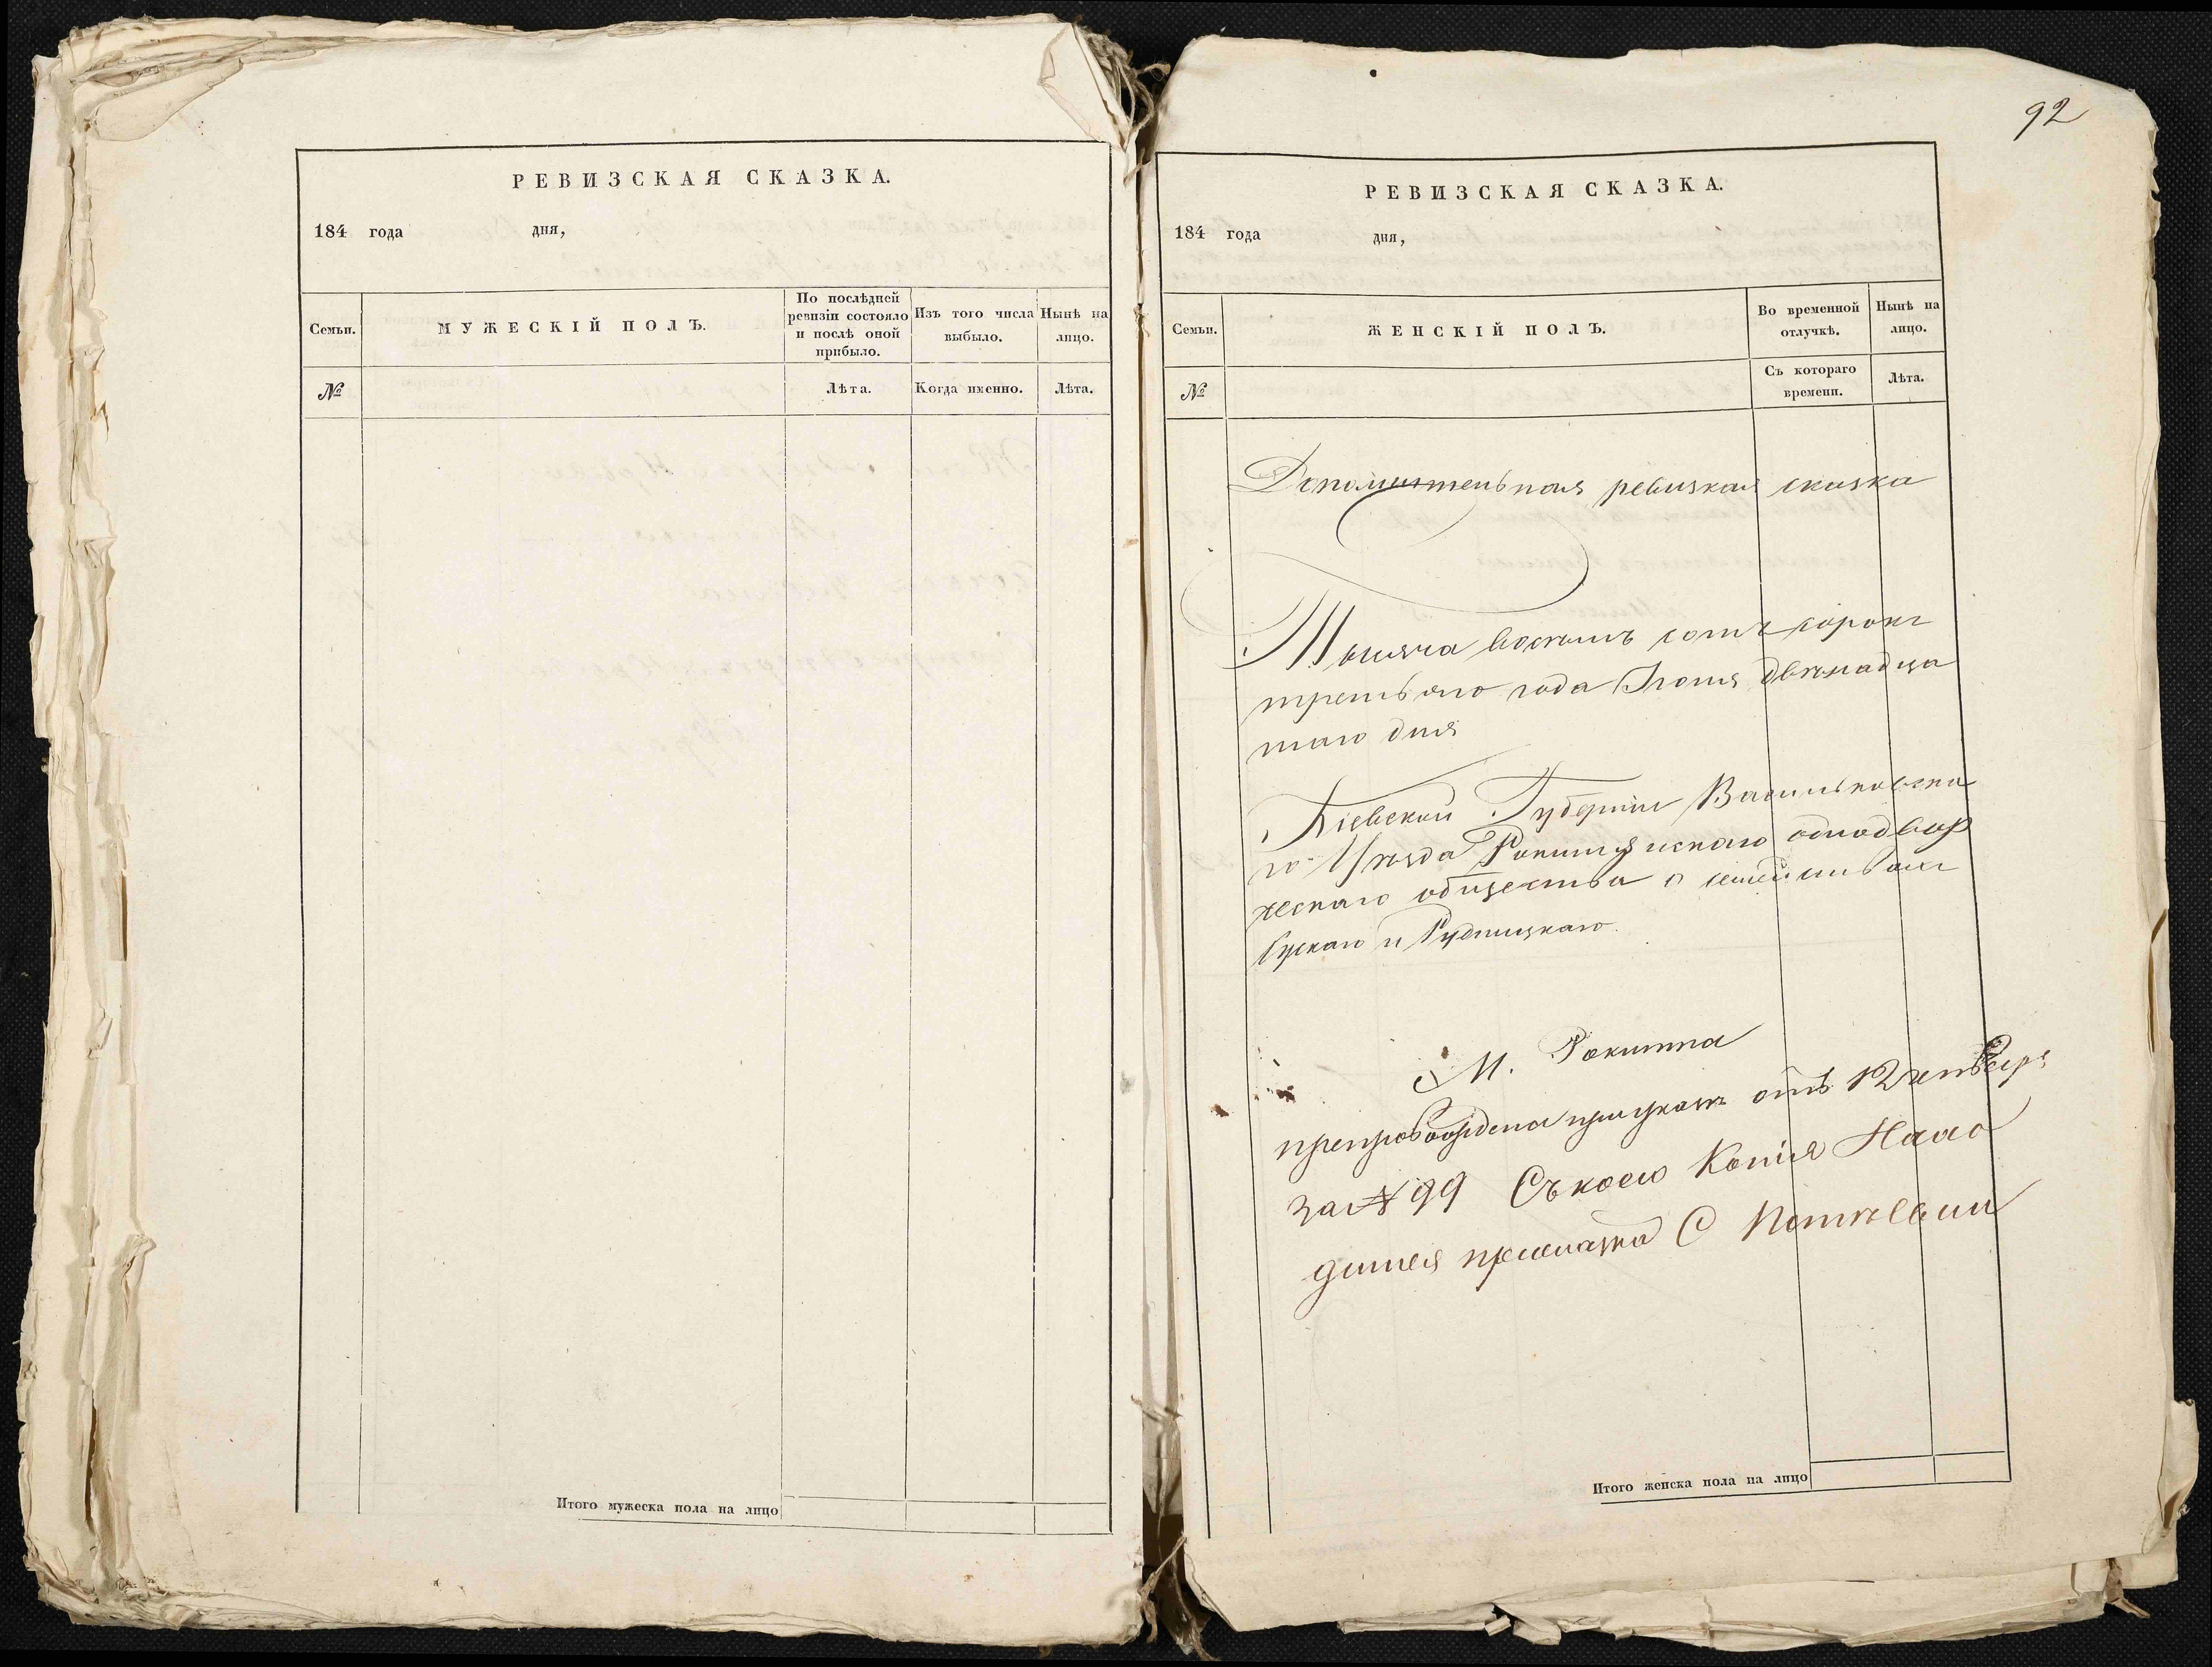 РЕВИЗСКАЯ СКАЗКА.
184 года дня,
Семьи.
МУЖЕСКІЙ ПОЛЪ.
По послѣдней
ревизіи состояло
и послѣ оной
прибыло.
Изъ того числа
выбыло.
Нынѣ на
лицо.
№
Лѣта.
Когда именно.
Лѣта.
Итого мужеска пола на лицо
92
РЕВИЗСКАЯ СКАЗКА.
184 года дня,
Семьи.
ЖЕНСКІЙ ПОЛЪ.
Во временной
отлучкѣ.
Нынѣ на
лицо.
№
Съ котораго
времени.
Лѣта.
Дополнительная ревизкая сказка
Тысяча восемъ сотъ сорокъ
третьяго года Іюня двѣнадца
таго дня
Кіевской Губерніи Васильковска
го Уѣзда Рокитянскаго однодвор
ческаго общества о семействахъ
и Рудницкаго
М. Рокитна
препровождена при указѣ отъ 12 января
за № 99 Съ коего Копія
Итого женска пола на лицо